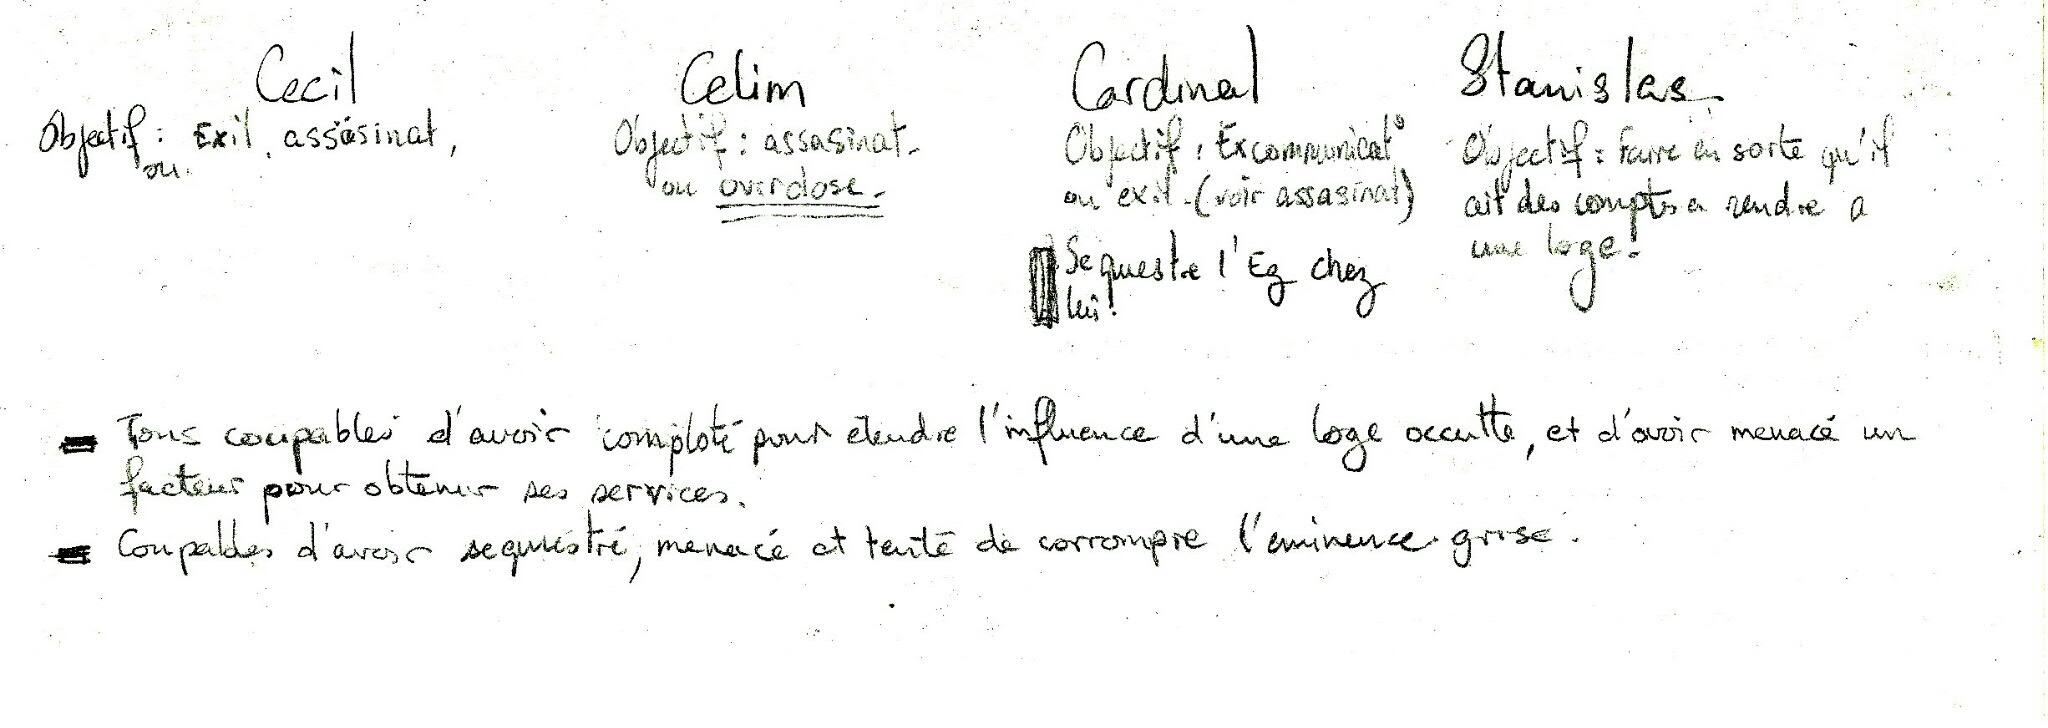 Cecil
Objectif : Exil, assasinat,
ou
Celim
Objectif : assasinat.
ou overdose.
Cardinal
Objectif : Excommunicat°
ou exil. (voir assasinat)
Sequestre l'Eg chez
lui!
Stanislas.
Objectif : Faire en sorte qu'il
ait des comptes a rendre a
une loge!
- Tous coupables d'avoir comploté pour étendre l'influence d'une loge occulte, et d'avoir menacé un
facteur pour obtenir ses services.
- Coupables d'avoir sequestré, menacé et tenté de corrompre l'eminence grise.